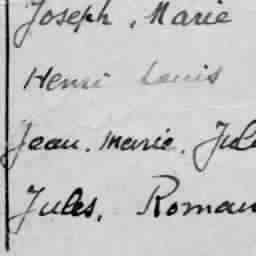 Joseph, Marie
Henri Louis
Jean. Marie. Jul
Jules. Romau